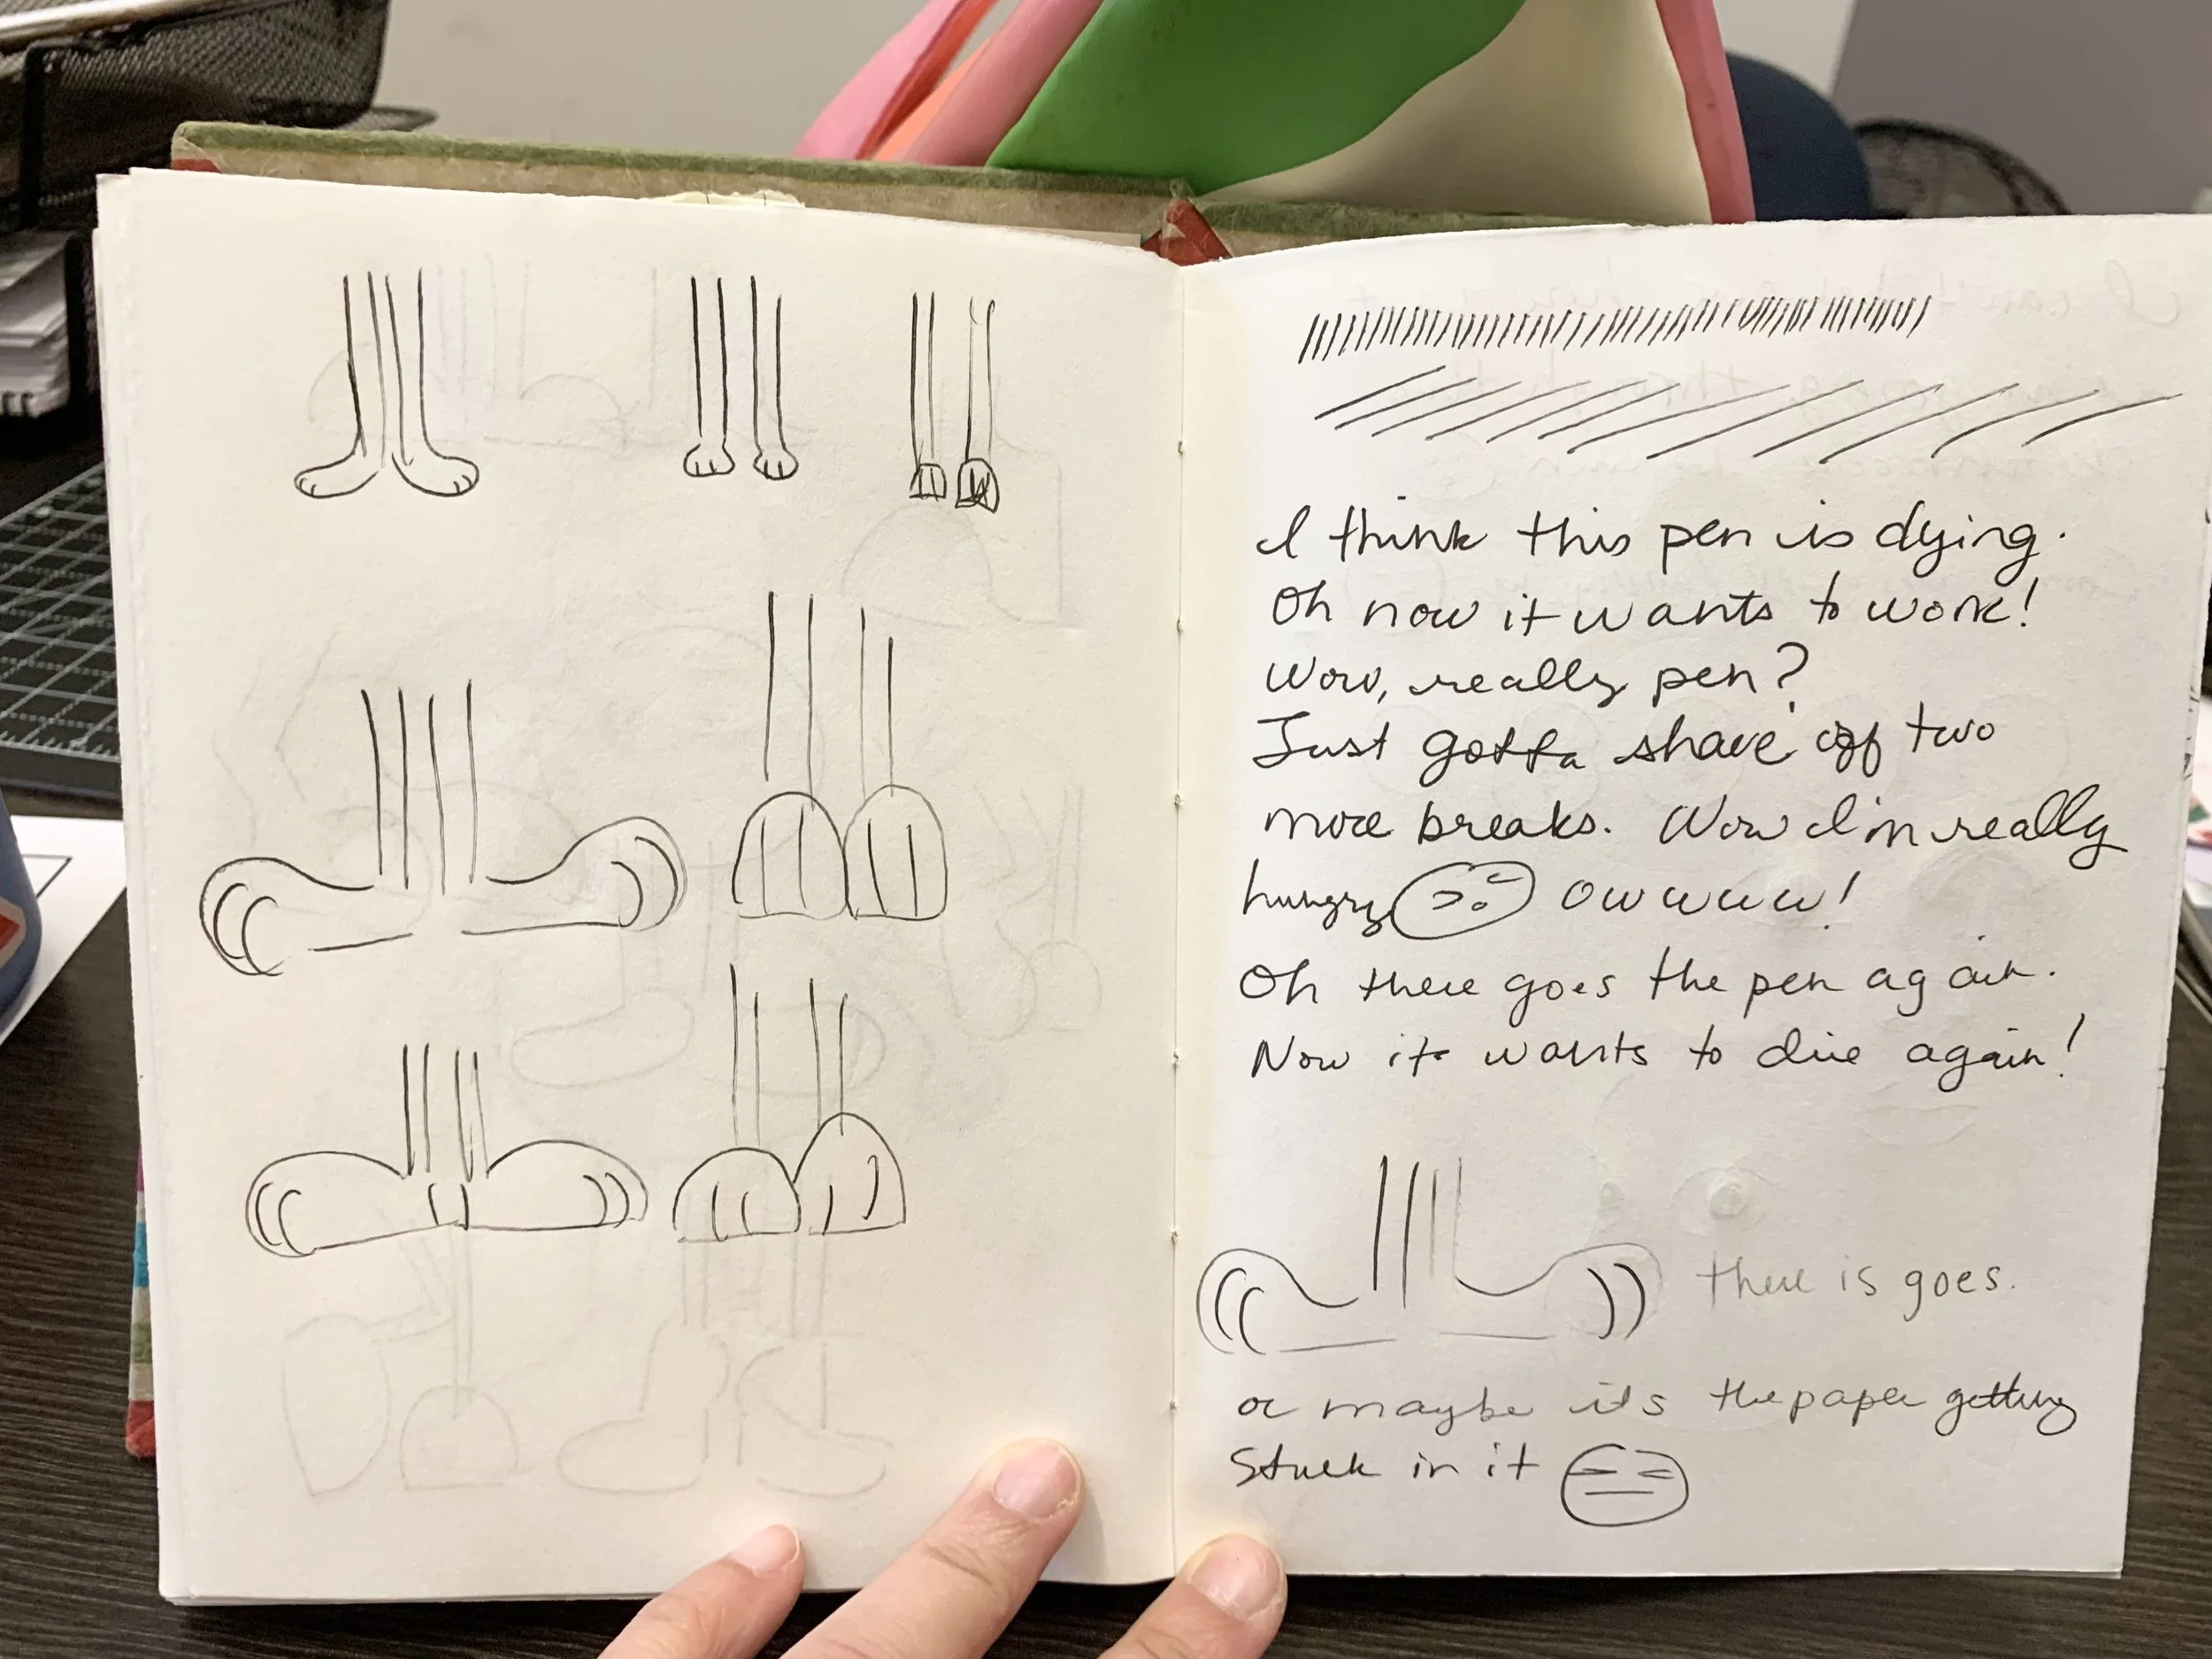 I think this pen is dying.
Oh now it wants to work!
Wow, really pen?
Just gotta shave off two
more breaks. Wow I'm really
hungry owwww!
Oh there goes the pen again.
Now it wants to die again!
there is goes.
or maybe its the paper getting
stuck in it